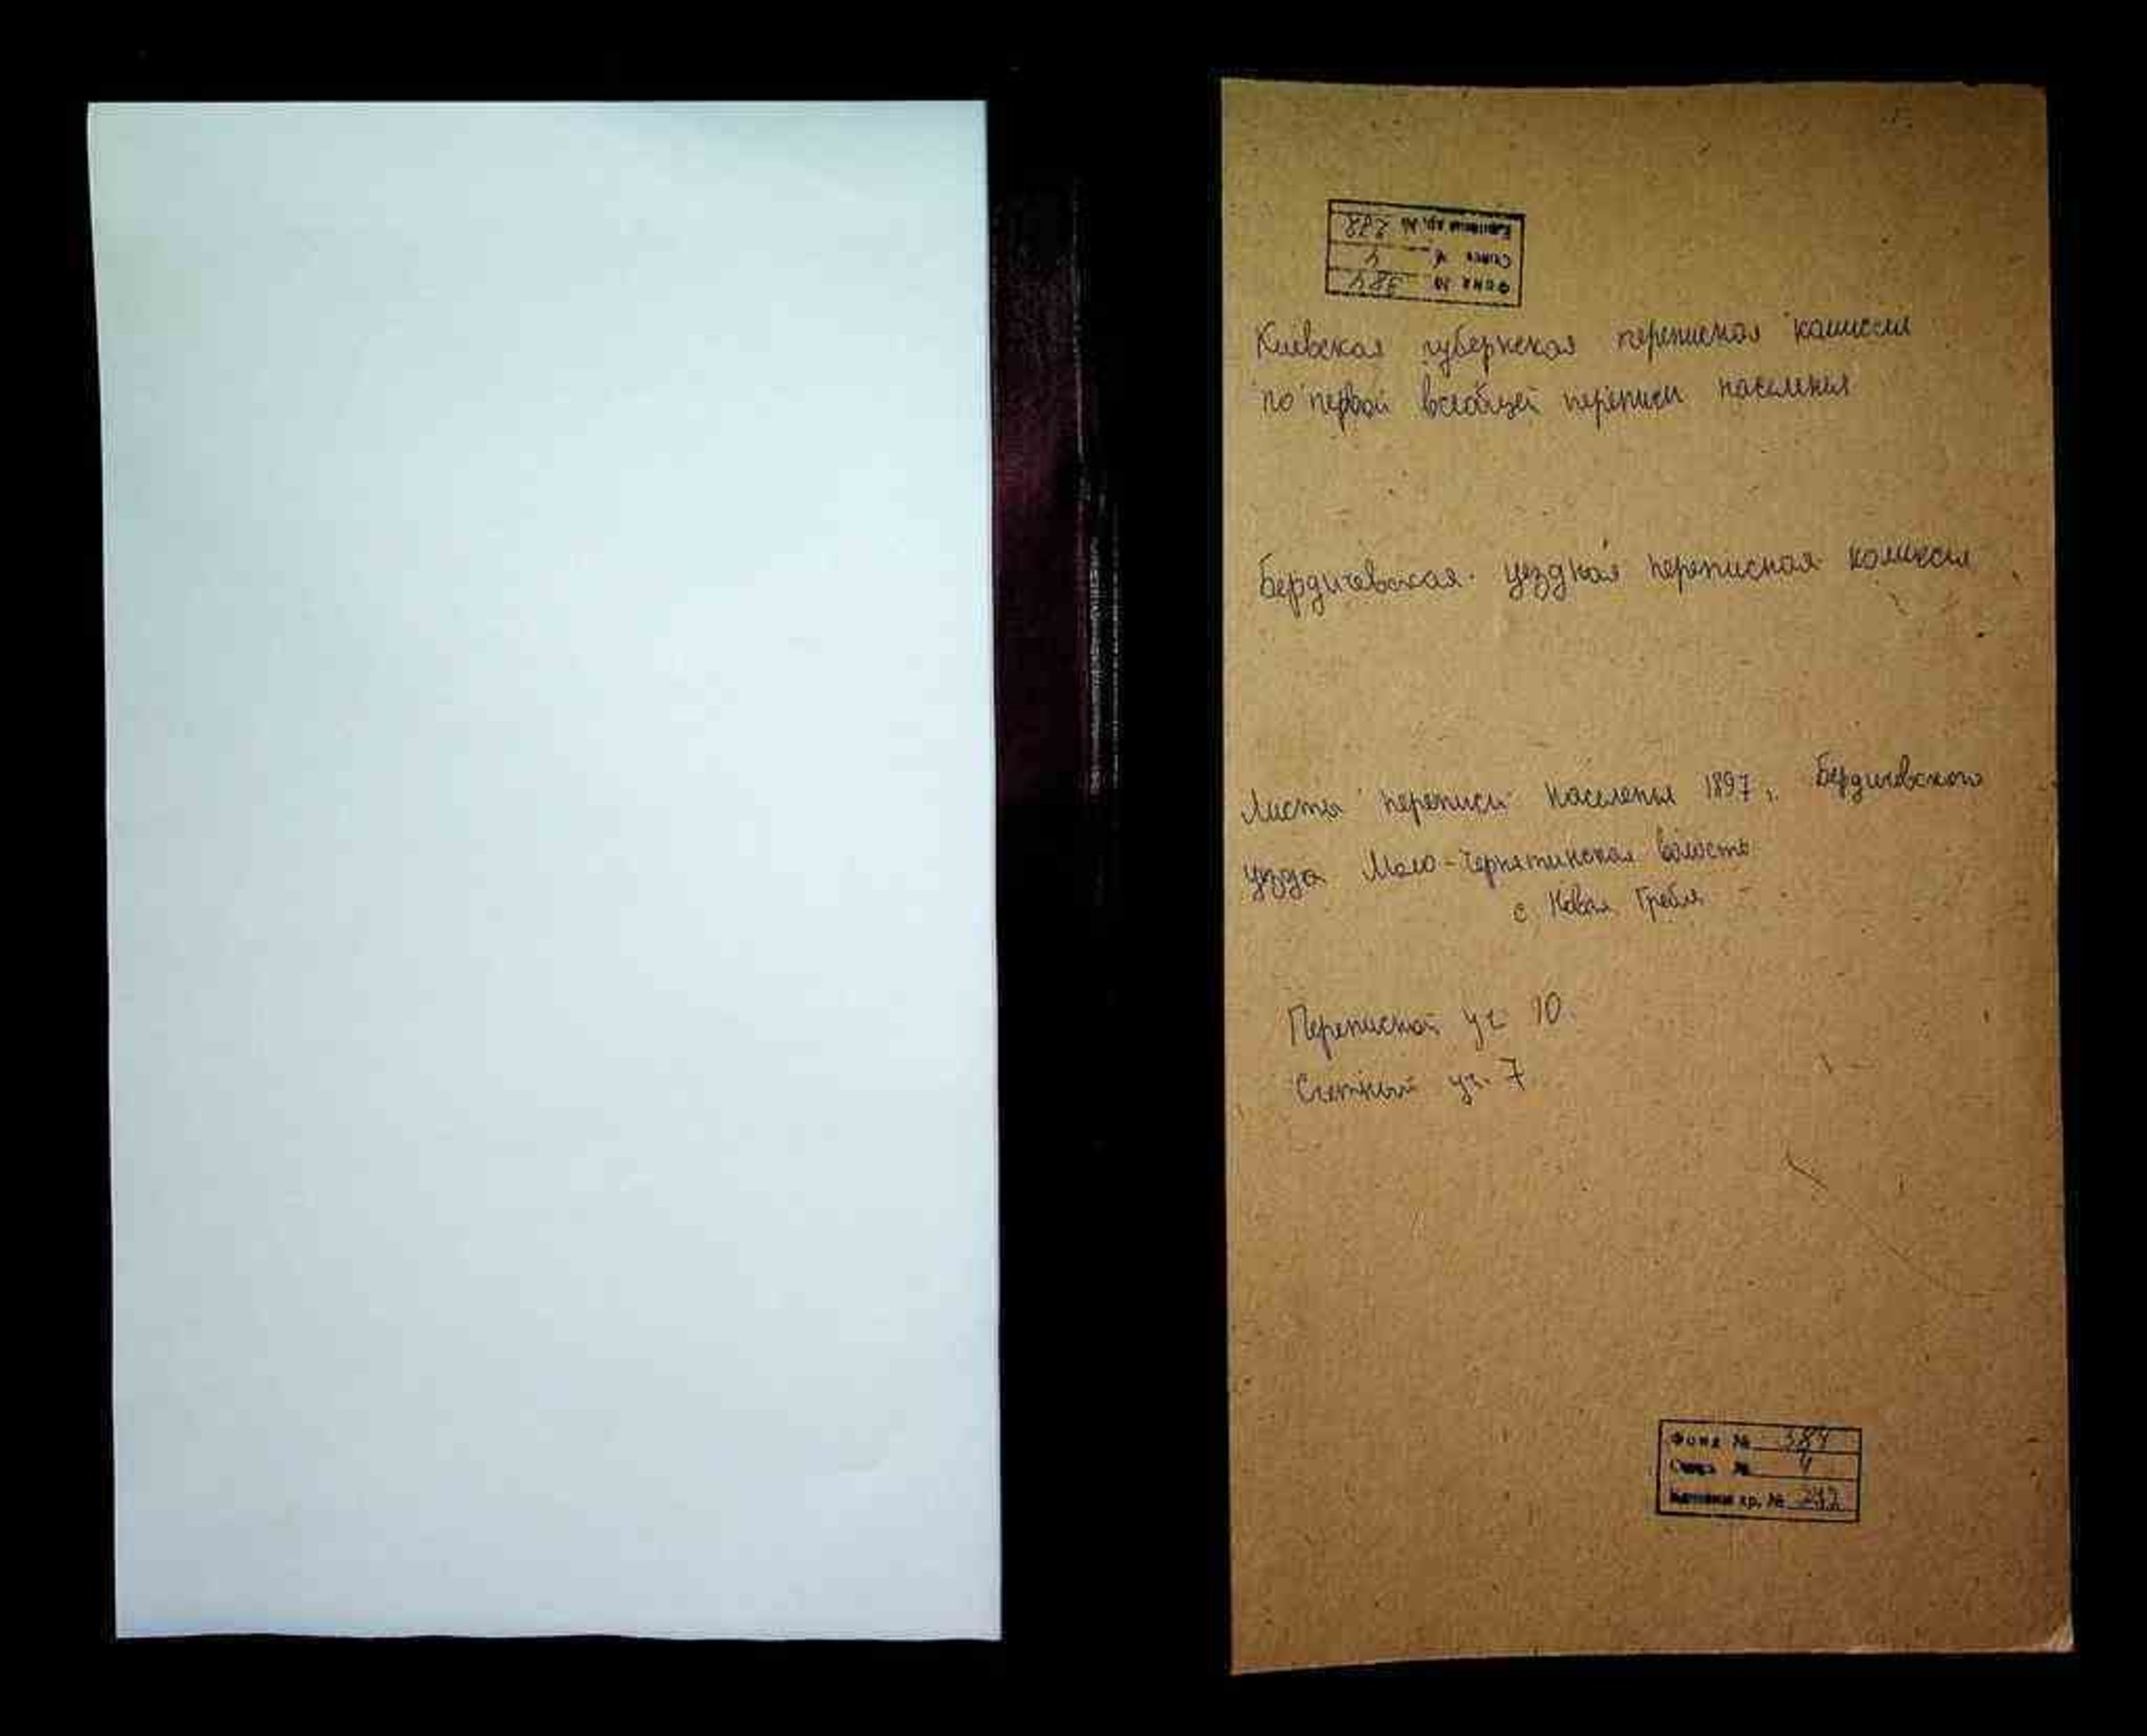 Фонд № 384
Опись № 4
Единица хр. №
Киевская губернская переписная комиссия
по первой всеобщей переписи населения
Бердичевская уездная переписная комиссия
Листы переписи населения 1897 г. Бердичевского
уезда Мало-Чернятинская волость
с Новая Гребля
Переписной уч 10
Счетный уч. 7
Фонд № 384
Опись № 4
Единица хр. №